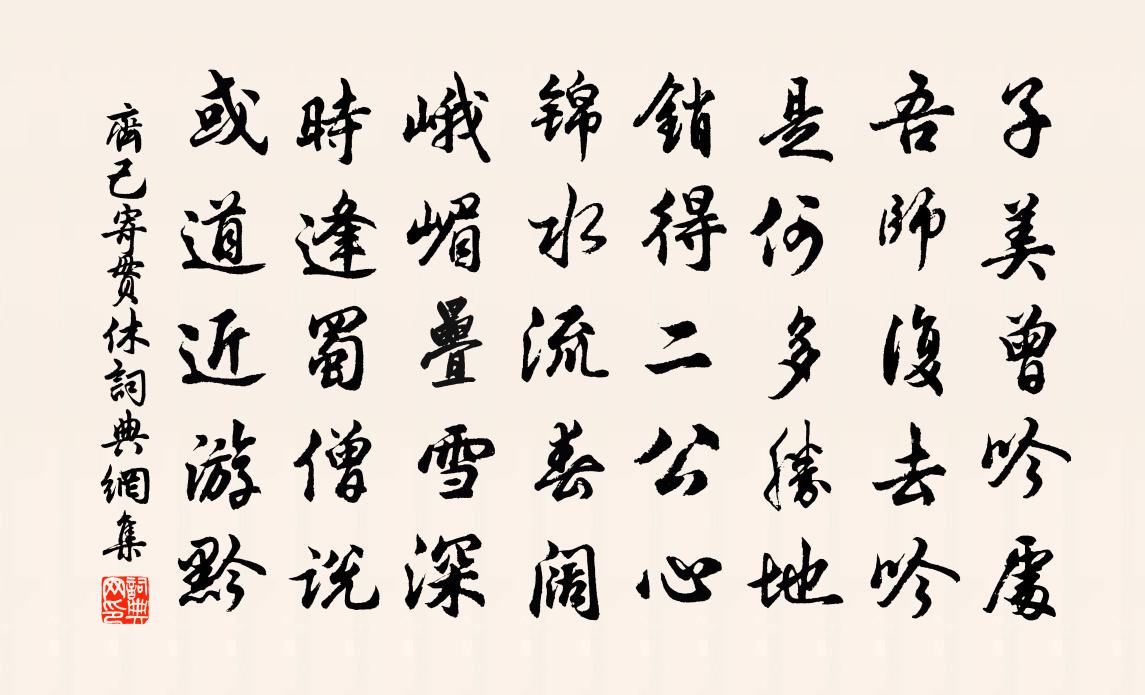 子美曾吟處
吾師復去吟
是何多勝地
銷得二公心
锦水流春闊
峨嵋疊雪深
時逢蜀僧説
或道近游黔
齊己寄貫休詞典網集
詞典網印